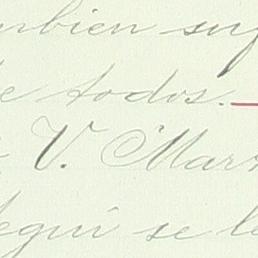 mbien suf
e todos.
V. Mars
egui se le